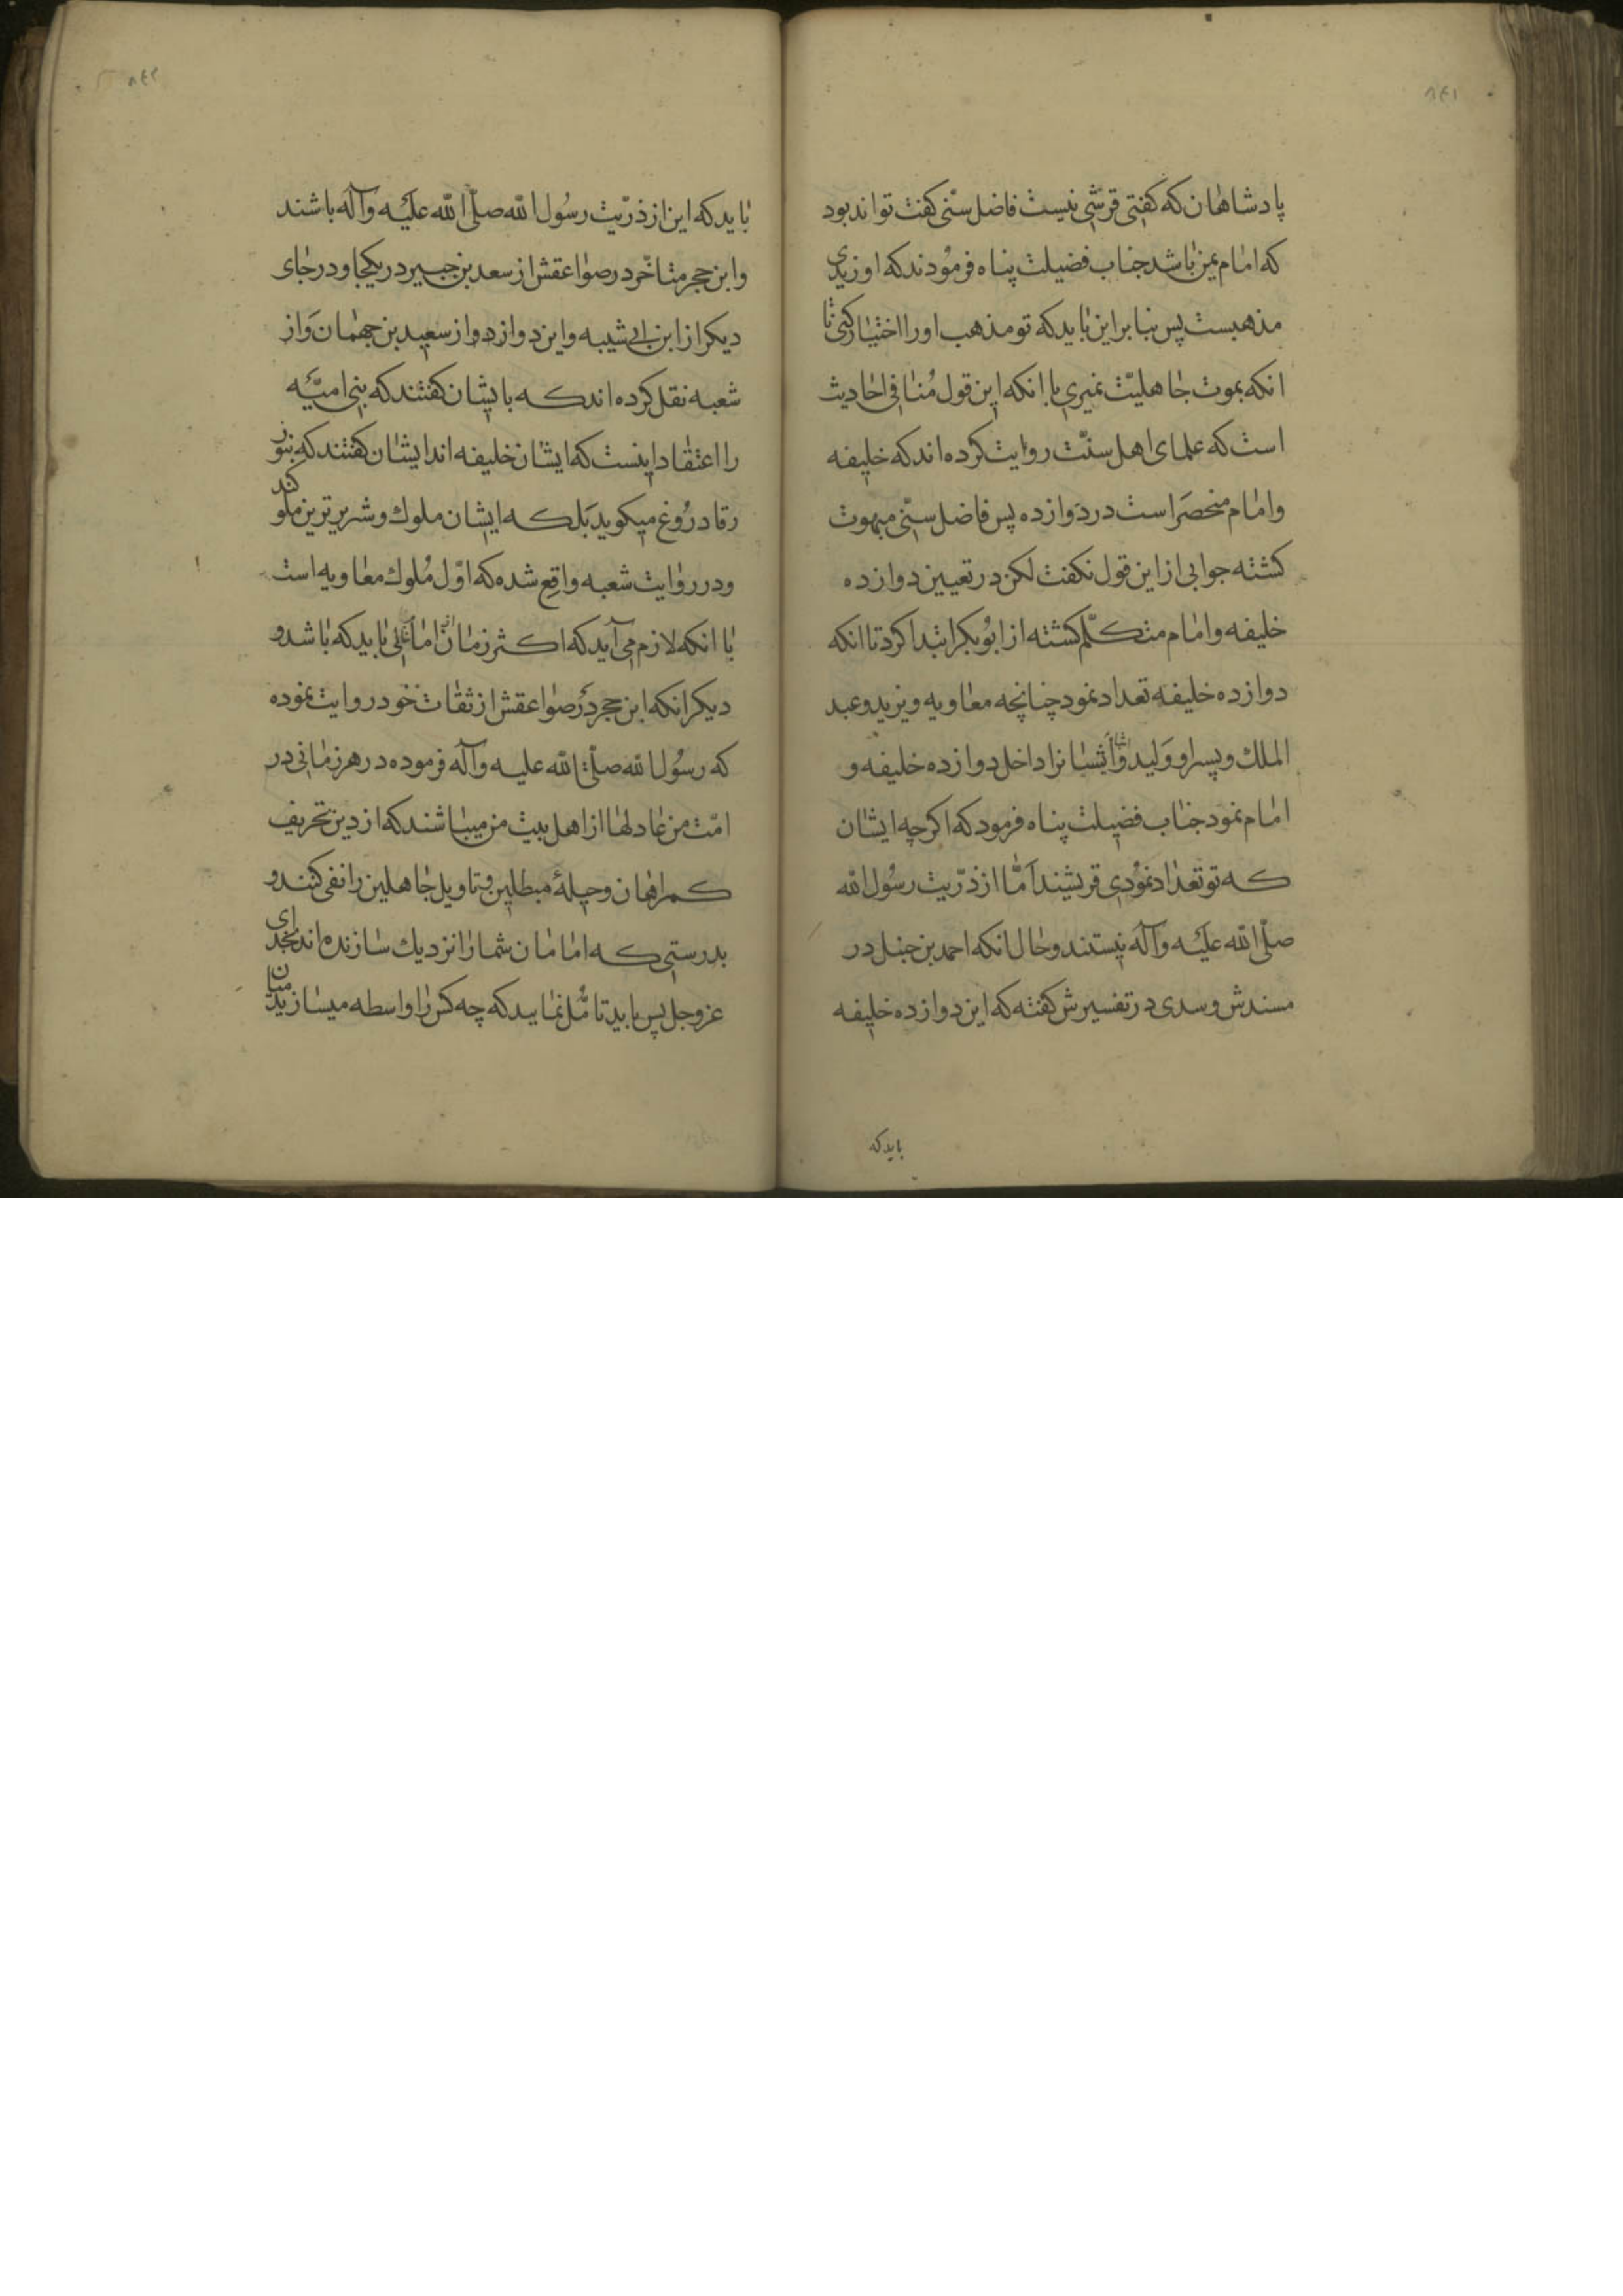 ۸۴۱
پادشاهان که کفتی قرشی نیست فاضل سنّی کفت تواند بود
که امام یمن باشد جناب فضیلت پناه فرمودند که او زیدی
مذهبست پس بنا براین باید که تو مذهب او را اختیار کنی تا
انکه بموت جاهلیّت نمیری با انکه این قول مُنافی احادیث
است که علمای اهل سنّت روایت کرده اند که خلیفه
و امام منحصَر است در دوازده پس فاضل سنّی مبهوت
کشته جوابی از این قول نکفت لکن در تعیین دوازده
خلیفه و امام متکلّم کشته از ابوُبکر ابتدا کرد تا انکه
دوازده خلیفه تعداد نمود چنانچه معاویه و یزید و عبد
الملک و پسر او وَلید و ایشانرا داخل دوازده خلیفه و
امام نمود جناب فضیلت پناه فرمود که اکرچه ایشان
که تو تعداد نموُدی قریشند اَمّا از ذرّیت رسوُل الله
صلّی الله علَیه وآله نیستند و حال انکه احمد بن حنبل در
مسندش و سدی در تفسیرش کفته که این دوازده خلیفه
باید که
۸۴۲
باید که این از ذرّیت رسوُل الله صلّی الله علَیه وآله باشند
و ابن حجر متاخّر در صواعقش از سعد بن جبیر در یکجا و در جای
دیکر از ابن ابی شیبه و این دو از دو از سعید بن جهمان وَ از
شعبه نقل کرده اند که با یشان کفتند که بنی امیّه
را اعتقاد اینست که ایشان خلیفه اند ایشان کفتند که بنو ز
رقا دروُغ میکوید بَلکه ایشان ملوک و شریرترین ملوکند
و در روایت شعبه واقع شده که اوّل مُلوک معاویه است
با انکه لازم می آید که اکثر زمان از امام خالی باید که باشد و
دیکر انکه ابن حجر دَر صواعقش از ثقات خود روایت نموده
که رسوُل الله صلّی الله علیه وآله فرموده در هر زمانی در
امّت من عادلها از اهل بیت من میباشند که از دین تحریف
کمراهان و حیلهٔ مبطلین و تاویل جاهلین را نفی کنند و
بدرستی که امامان شما را نزدیک سازنده اند بخدای
عزوجل پس باید تامُّل نمایید که چه کس را واسطه میسازید میان